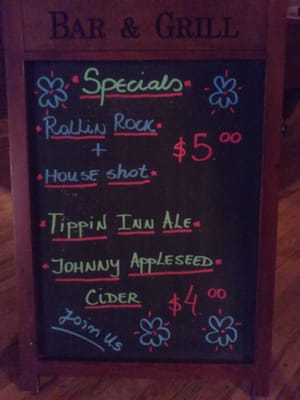 BAR & GRILL
Specials
ROLLIN ROCK
+
$5.00
HOUSE shot
TIPPIN INN ALE
JOHNNY APPLESEED
CIDER $4.00
Join us